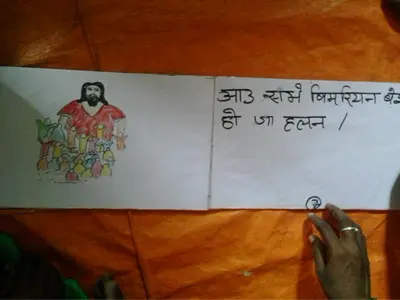 आउ सभे बिमरियन
हो जा हलन /